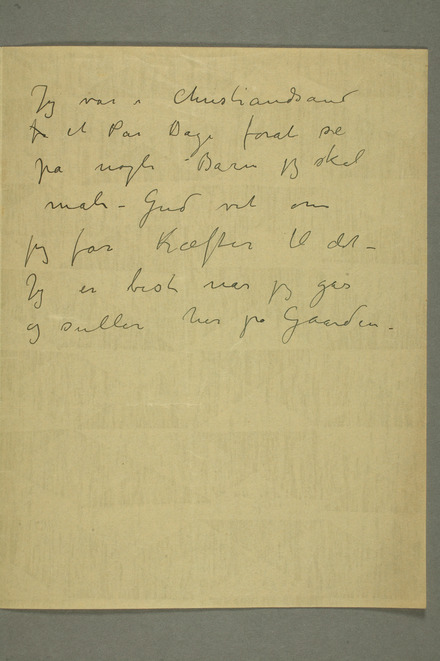 Jeg var i Christiandsand
et Par Dage forat se
på nogle Barn jeg skal
male – Gud vet om
jeg får Kræfter til det –
Jeg er best når jeg gås
og suller her på Gaarden –